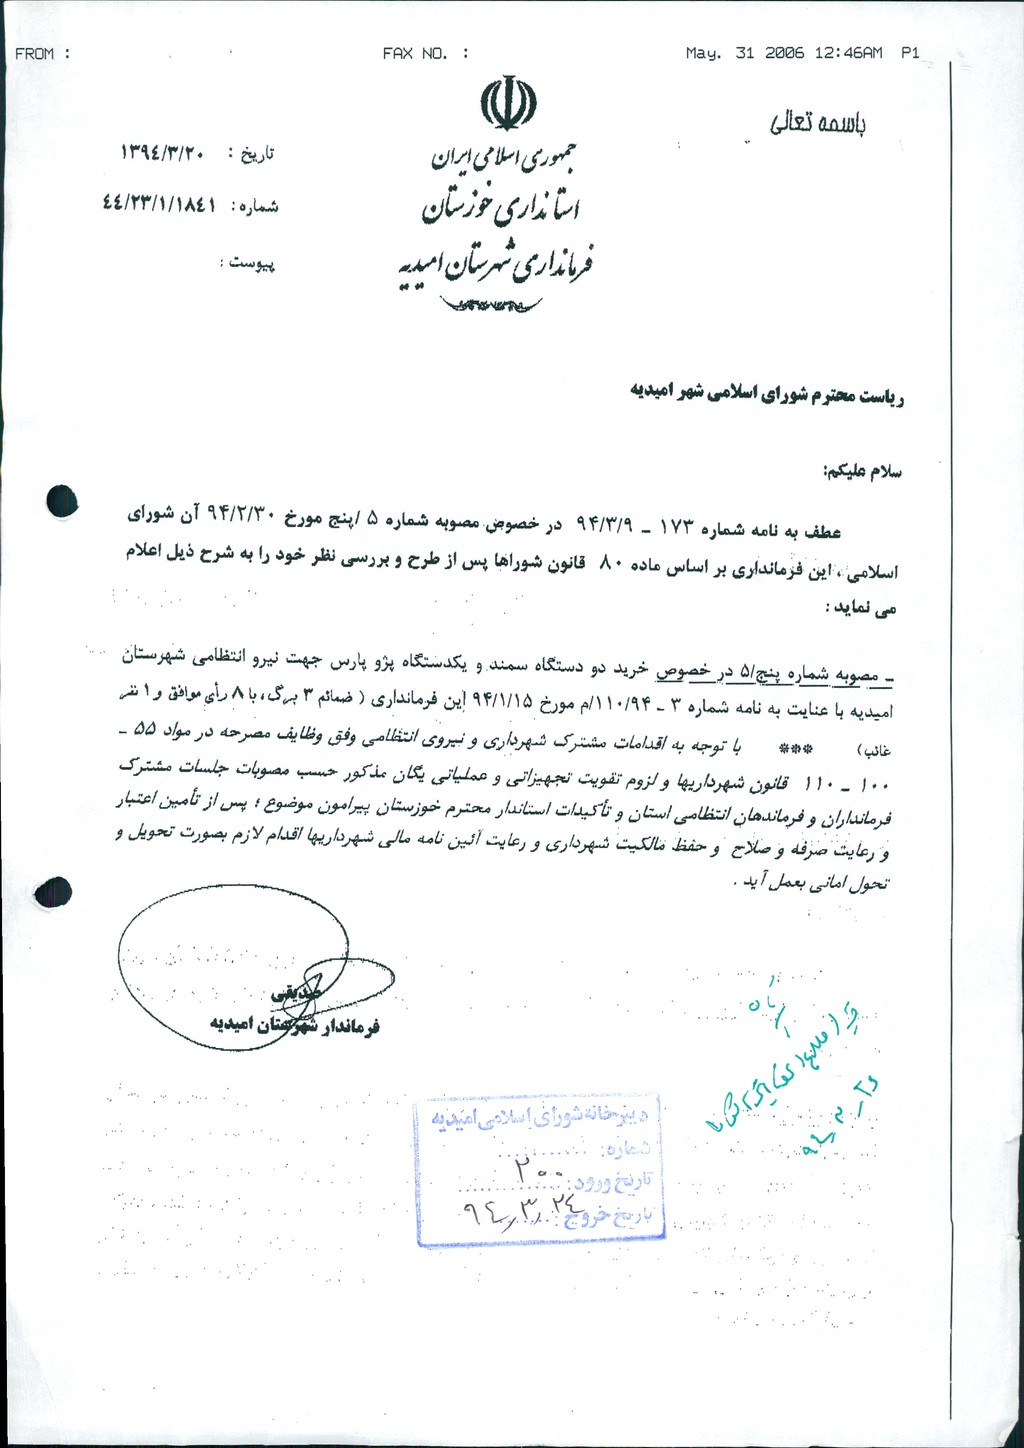 FROM :
FAX NO. :
May. 31 2006 12:46AM P1
باسمه تعالی
جمهوری اسلامی ایران
استانداری خوزستان
فرمانداری شهرستان امیدیه
تاریخ : ۱۳۹٤/۳/۲۰
شماره : ٤٤/۲۳/۱/۱۸٤۱
پیوست :
ریاست محترم شورای اسلامی شهر امیدیه
سلام علیکم:
عطف به نامه شماره ۱۷۳ ـ ۹۴/۳/۹ در خصوص مصوبه شماره ۵ /پنج مورخ ۹۴/۲/۳۰ آن شورای
اسلامی ، این فرمانداری بر اساس ماده ۸۰ قانون شوراها پس از طرح و بررسی نظر خود را به شرح ذیل اعلام
می نماید :
ـ مصوبه شماره پنج/۵ در خصوص خرید دو دستگاه سمند و یکدستگاه پژو پارس جهت نیرو انتظامی شهرستان
امیدیه با عنایت به نامه شماره ۳ ـ ۱۱۰/۹۴/م مورخ ۹۴/۱/۱۵ این فرمانداری ( ضمائم ۳ برگ، با ۸ رأی موافق و ۱ نفر
غائب) *** با توجه به اقدامات مشترک شهرداری و نیروی انتظامی وفق وظایف مصرحه در مواد ۵۵ ـ
۱۰۰ ـ ۱۱۰ قانون شهرداریها و لزوم تقویت تجهیزاتی و عملیاتی یگان مذکور حسب مصوبات جلسات مشترک
فرمانداران و فرماندهان انتظامی استان و تأکیدات استاندار محترم خوزستان پیرامون موضوع ؛ پس از تأمین اعتبار
و رعایت صرفه و صلاح و حفظ مالکیت شهرداری و رعایت آئین نامه مالی شهرداریها اقدام لازم بصورت تحویل و
تحول امانی بعمل آید .
صدیقی
فرماندار شهرستان امیدیه
دبیرخانه شورای اسلامی امیدیه
شماره:
۲۰۰
تاریخ ورود:
تاریخ خروج : ۹٤٫۳٫۲٤